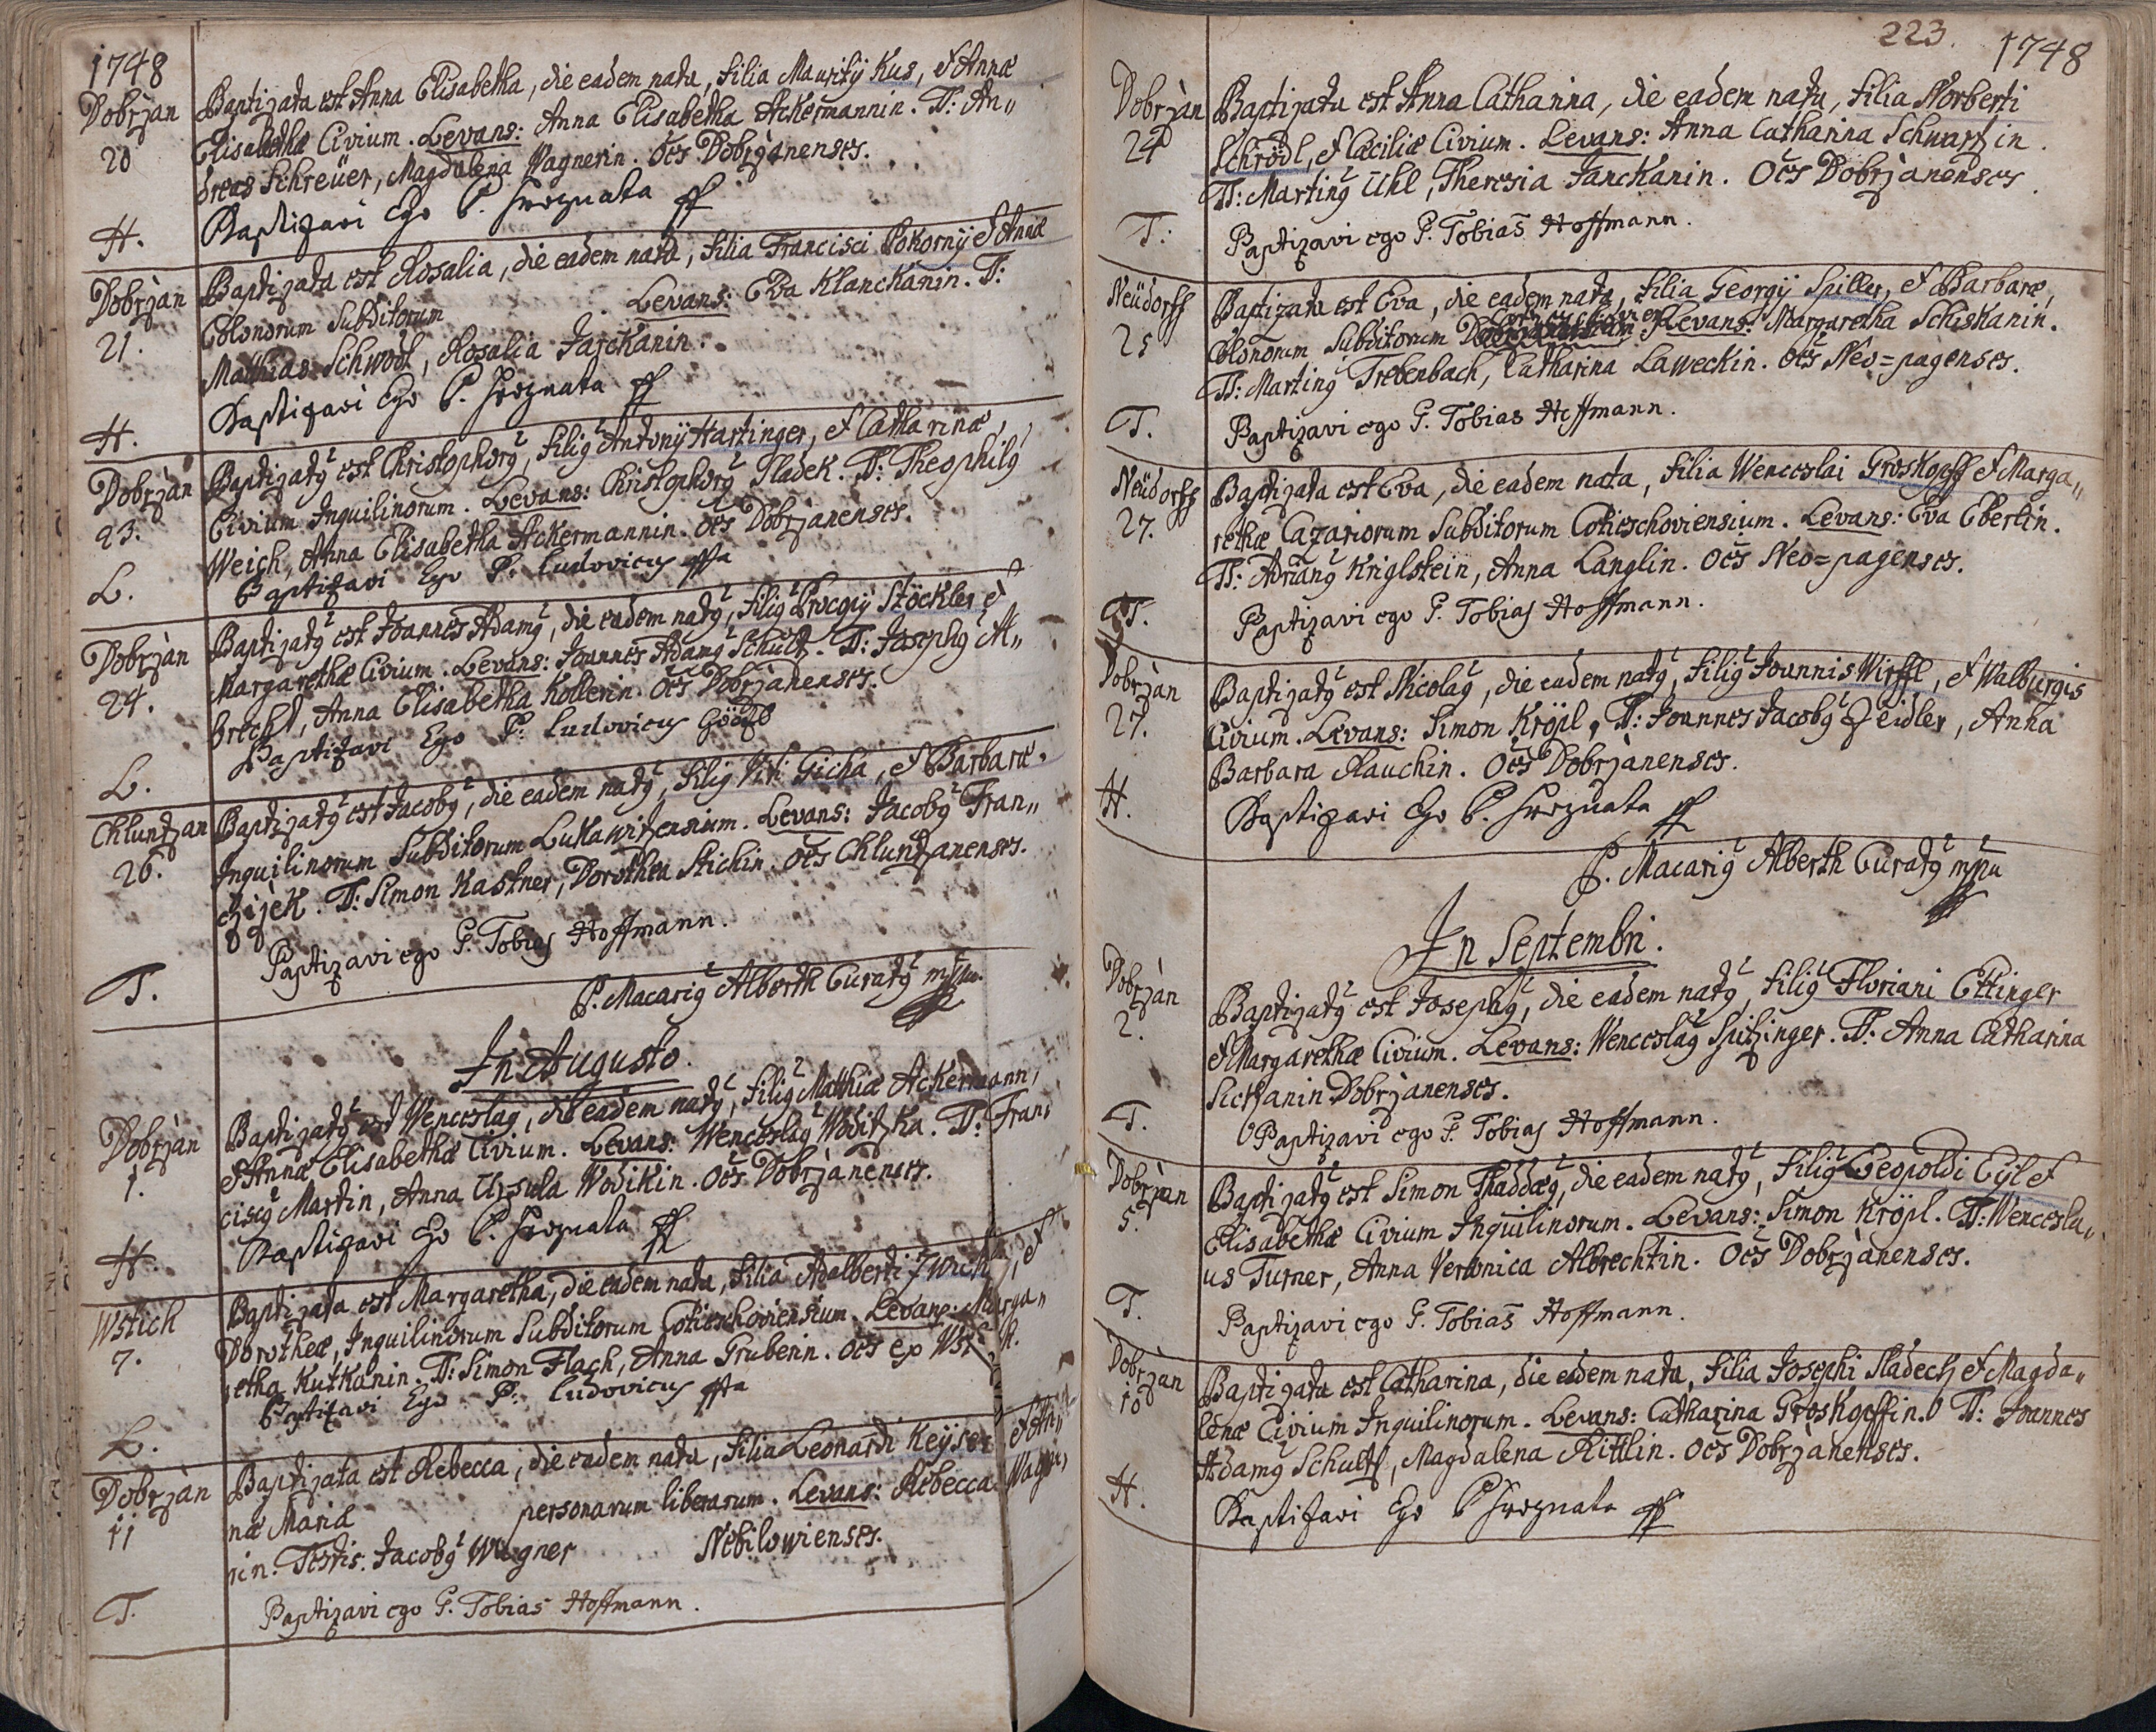 1748
Dobrzan
20
Baptizata est Anna Elisabetha, die eadem nata, filia Mauritij Kus, et Annæ
Elisabethæ Civium. Levans: Anna Elisabetha Ackermannin. TT: An„
dreas Schreüer, Magdalena Wagnerin. Oēs Dobrzanenses.
H.
Baptizavi Ego P. Hroznata
Dobrzan
21.
Baptizata est Rosalia, die eadem nata, filia Francisci Pokornÿ et Annæ
Colonorum Subditorum Levans: Eva Klanckanin. TT:
Matthias Schwodl, Rosalia Jaschkanin.
H.
Baptizavi Ego P. Hroznata
Dobrzan
23.
Baptizatg est Christophorg, filig Antonÿ Hartinger, et Catharinæ,
Civium Inquilinorum. Levans: Christophorg Sladek. TT: Theophilg
Weich, Anna Elisabetha Ackermannin. oēs Dobrzanenses.
L.
Baptizavi Ego P: Ludovicus
Dobrzan
24.
Baptizatg est Joannes Adamg, die eadem natg, filig Procopÿ Stöckler et
Margarethæ Civium. Levans: Joannes Adamg Schultz. TT: Josephg Al„
brecht, Anna Elisabetha Kollerin. Oēs Dobrzanenses.
L.
Baptizavi Ego P: Ludovicus
Chluntzan
26.
Baptizatg est Jacobg, die eadem natg, filig Viti Gicha, et Barbaræ.
Inquilinorum Subditorum Lukawitzensium. Levans: Jacobg Fran„
czizek. TT: Simon Kastner, Dorothea Stichin. oēs Chluntzanenses.
T.
Baptizavi ego P. Tobias Hoffmann.
P. Macarig Alberth Curatg mppu.
In Augusto.
Dobrzan
1.
Baptizatg est Wenceslag, die eadem natg, filig Mathiæ Ackermann,
et Annæ Elisabethæ Civium. Levans: Wenceslag Woditzka. TT: Fran„
ciscg Martin, Anna Ursula Wodikin. Oēs Dobrzanenses.
H.
Baptizavi Ego P. Hroznata
Wstich
7.
Baptizata est Margaretha, die eadem nata, filia Adalberti, et
Dorotheæ, Inquilinorum Subditorum Cotieschoviensium. Levans: Marga„
retha Kutkanin. TT: Simon Flach, Anna Gruberin. oēs ex
L.
Baptizavi Ego P: Ludovicus
Dobrzan
11
Baptizata est Rebecca, die eadem nata, filia Leonardi Keÿser et An„
næ Mariæ personarum liberarum. Levans: Rebecca Wagne„
rin. Testis. Jacobg Wagner Nebilowienses.
T.
Baptizavi ego P. Tobias Hoffmann.
223. 1748
Dobrzan
24
Baptizata est Anna Catharina, die eadem nata, filia Norberti
Schrödl, et Cæciliæ Civium. Levans: Anna Catharina Schwartzin.
TT: Marting Uhl, Theresia Janckanin. Oēs Dobrzanenses.
T:
Baptizavi ego P. Tobias Hoffmann.
Neüdorff
25
Baptizata est Eva, die eadem nata, filia Georgÿ Spiller, et Barbaræ,
Colonorum Subditorum Levans: Margaretha Schiskanin.
TT: Marting Trebenbach, Catharina Laweckin. oēs Neo=pagenses.
T.
Baptizavi ego P. Tobias Hoffmann.
Neüdorff
27.
Baptizata est Eva, die eadem nata, filia Wenceslai Groskopff et Marga„
rethæ Cazariorum Subditorum Cotieschoviensium. Levans: Eva Eberlin.
TT: Adriang Kriglstein, Anna Langlin. oēs Neo=pagenses.
T.
Baptizavi ego P. Tobias Hoffmann.
Dobrzan
27.
Baptizatg est Nicolag, die eadem natg, filig Joannis Wirffl, et Walburgis
Civium. Levans: Simon Kröpl, TT: Joannes Jacobg Zeidler, Anna
Barbara Rauchin. Oēs Dobrzanenses.
H.
Baptizavi Ego P. Hroznata
P. Macarig Alberth Curatg mppu
In Septembri.
Dobrzan
2.
Baptizatg est Josephg, die eadem natg, filig Floriani Ettinger
et Margarethæ Civium. Levans: Wenceslag Spitzinger. TT: Anna Catharina
Sichanin Dobrzanenses.
T.
Baptizavi ego P. Tobias Hoffmann.
Dobrzan
5.
Baptizatg est Simon Thaddæg, die eadem natg, filig Leopoldi Eÿl et
Elisabethæ Civium Inquilinorum. Levans: Simon Kröpl. TT: Wencesla„
us Turner, Anna Veronica Albrechtin. Oēs Dobrzanenses.
T.
Baptizavi ego P. Tobias Hoffmann.
Dobrzan
10
Baptizata est Catharina, die eadem nata, filia Josephi Sladech et Magda„
lenæ Civium Inquilinorum. Levans: Catharina Groskopffin. TT: Joannes
Adamg Schultz, Magdalena Rittlin. oēs Dobrzanenses.
H.
Baptizavi Ego P Hroznata